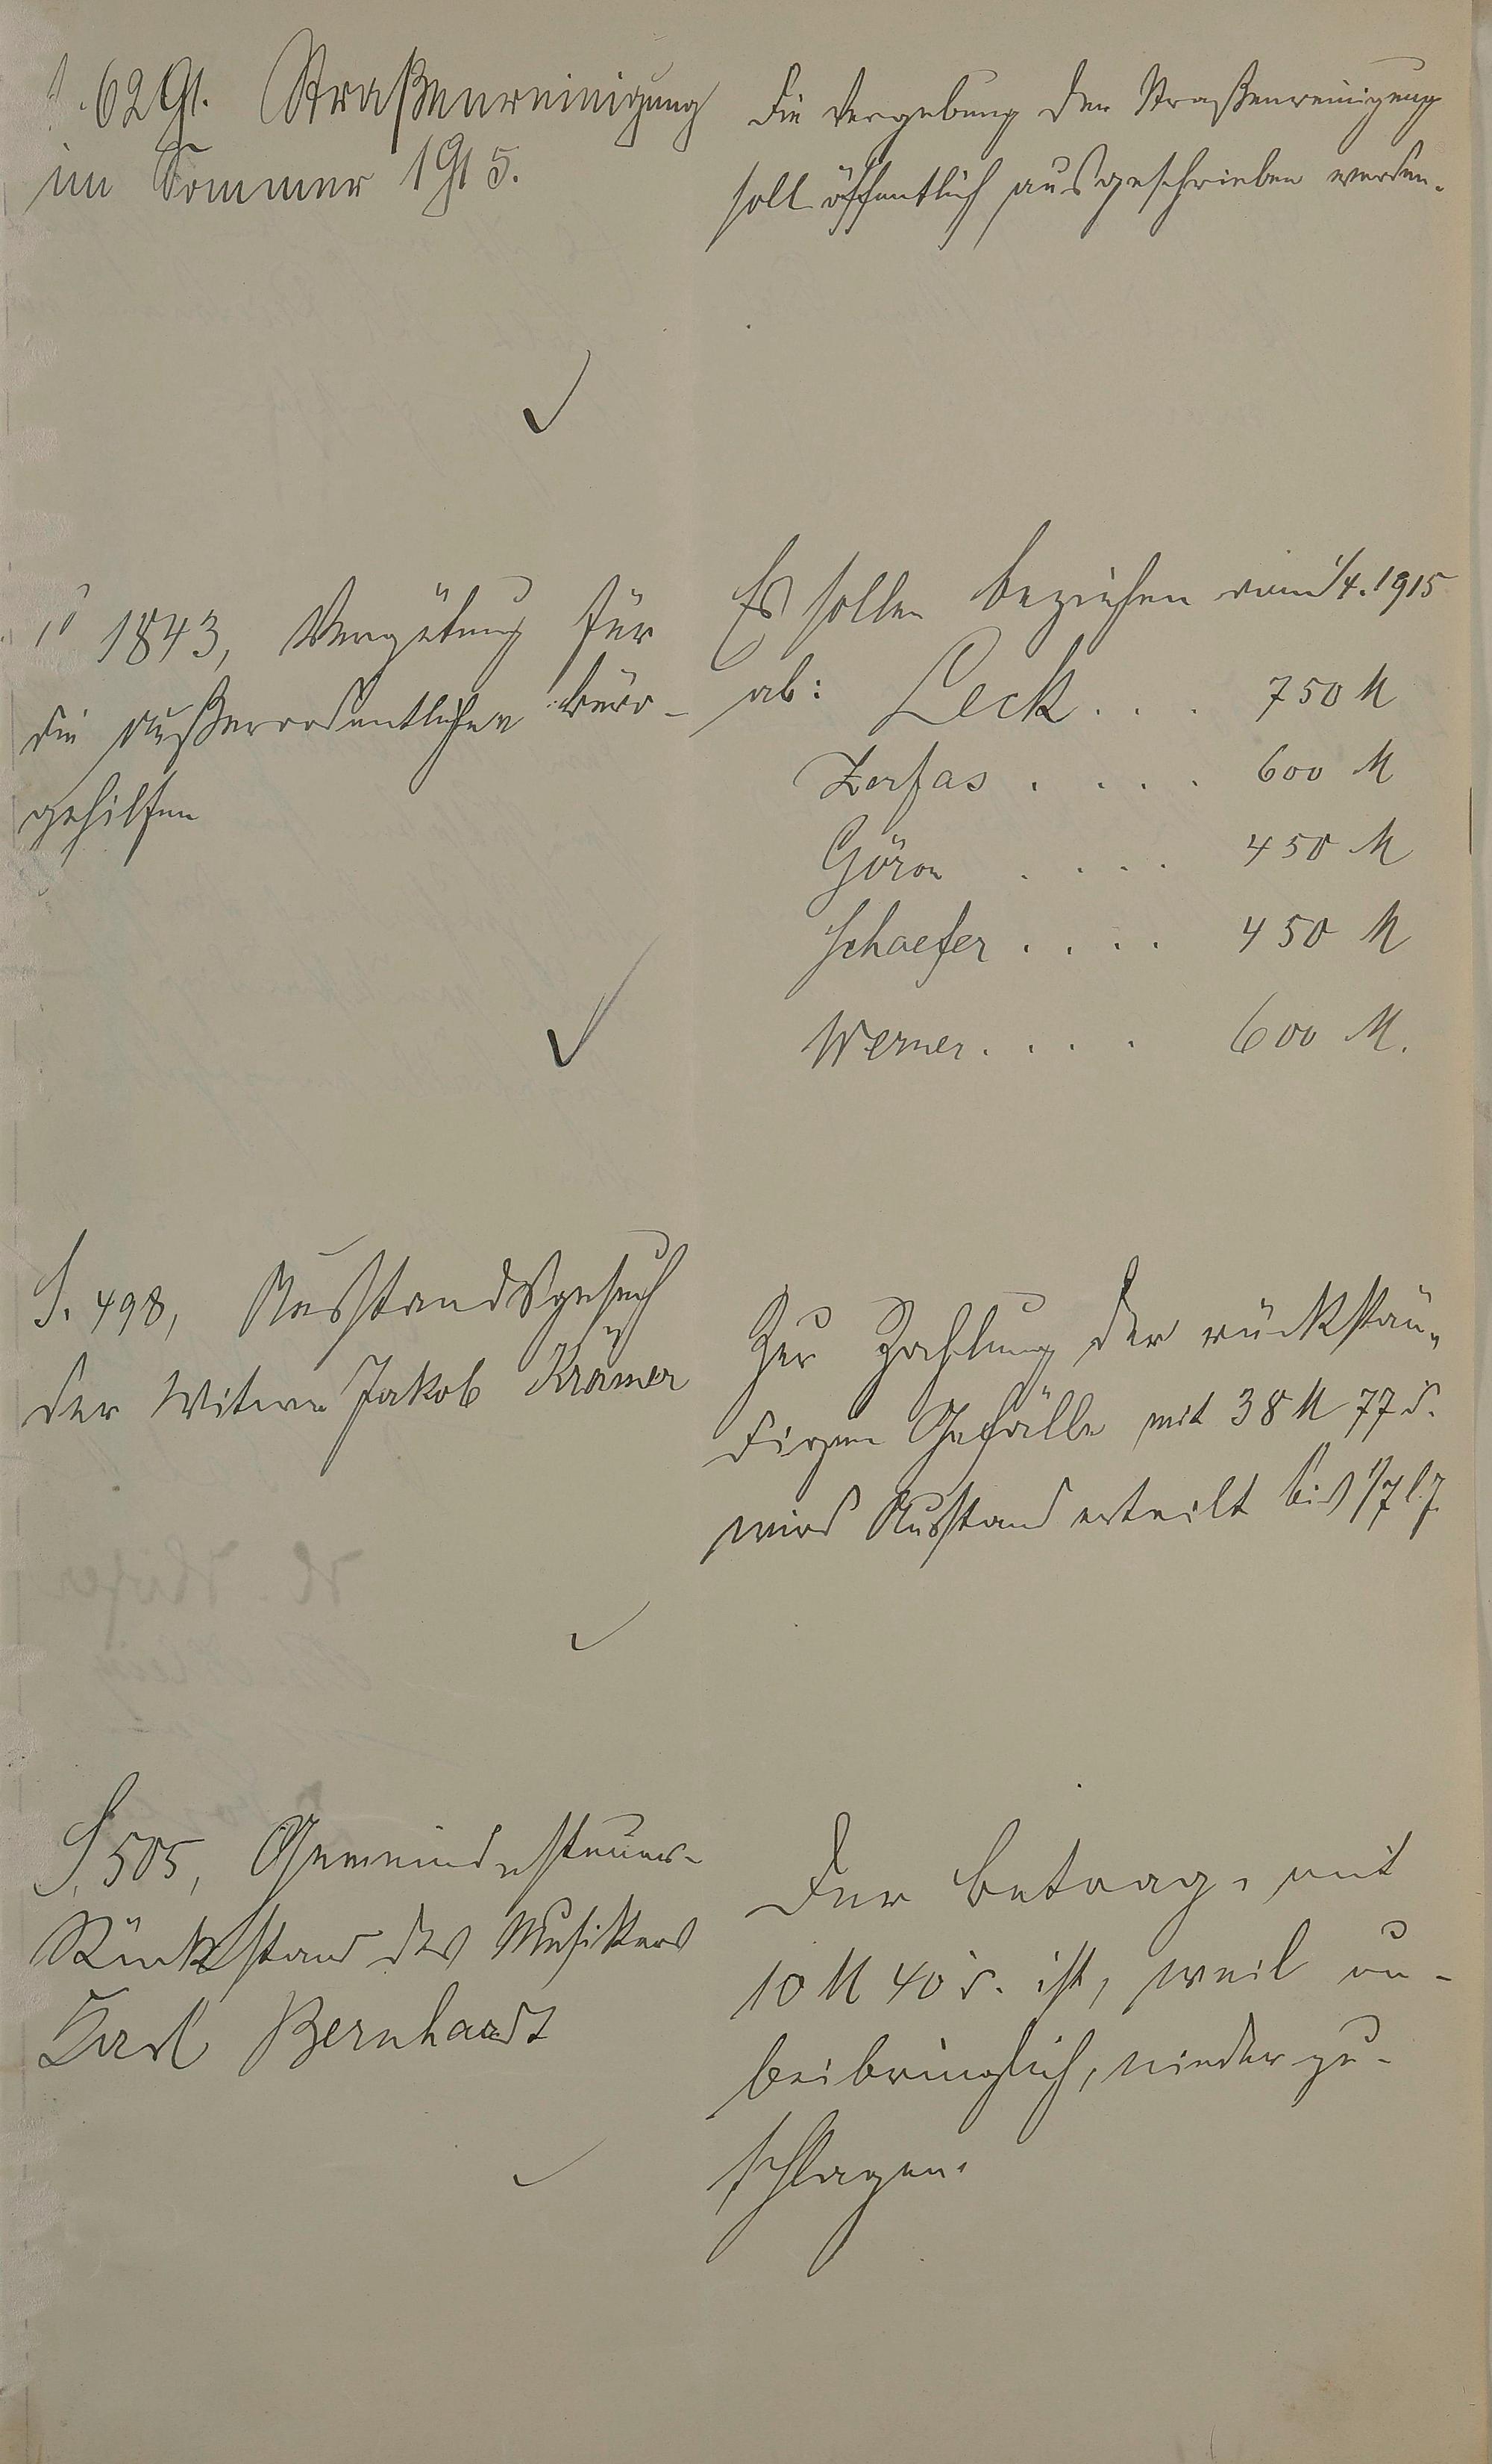 6291. Straßenreinigung
im Sommer 1915.
Die Vergebung der Straßenreinigung
soll öffentlich ausgeschrieben werden.
1843, Vergütung für
die außerordentlichen Büro-
gehilfen
Es sollen beziehen vom 1/4. 1915
ab: Leck . . . 750 M
Zerfas . . . . 600 M
Göron . . . . 450 M
Schaefer . . . . 450 M
Werner . . . . 600 M.
S. 498, Ausstandsgesuch
der Witwe Jakob Krämer
Zur Zahlung der rückstän-
digen Gefälle mit 38 M 77 d.
wird Ausstand erteilt bis 1/7 l. J.
S. 505, Gemeindesteuer-
Rückstand des Musikers
Karl Bernhardt
Der Betrag, mit
10 M 40 d. ist, weil un-
beibringlich, niederzu-
schlagen.